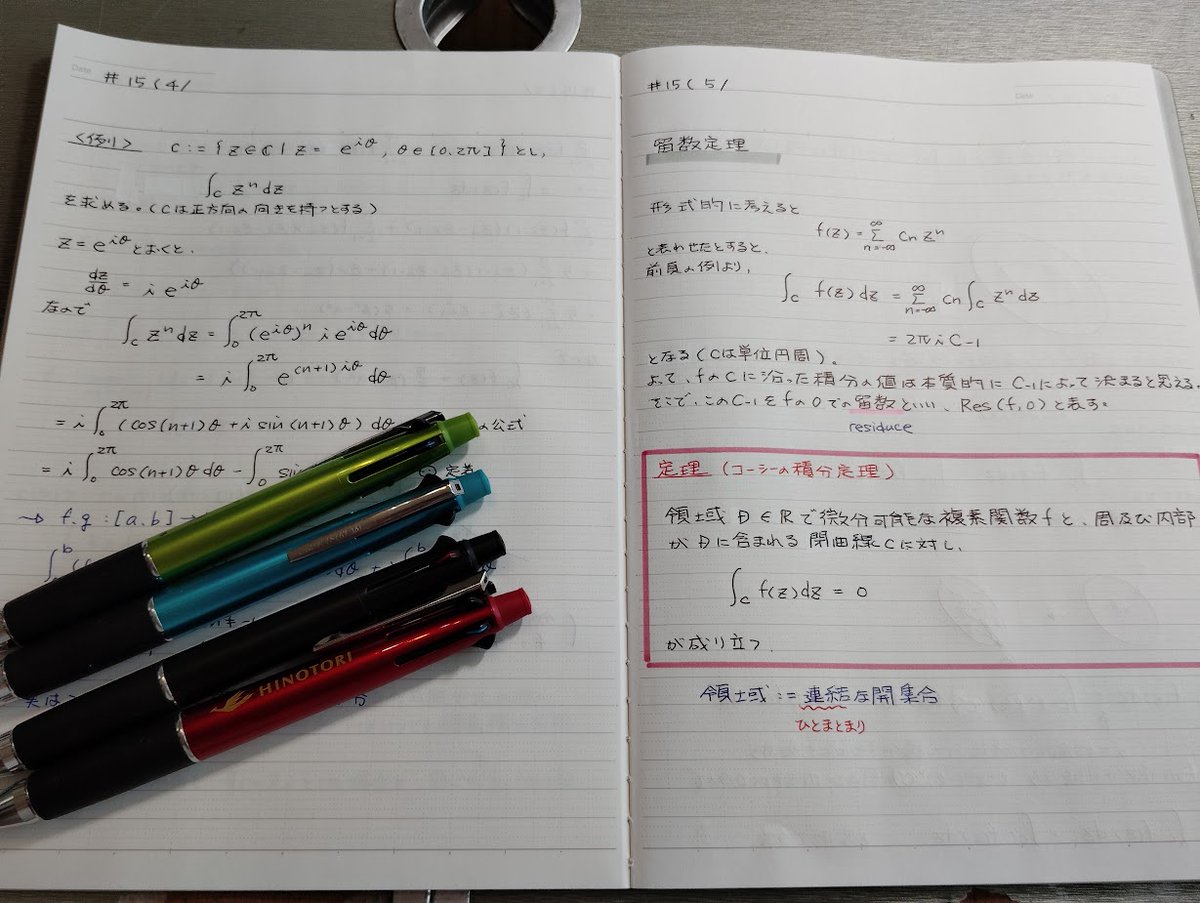 Date
#15(4/
<例> C := {z∈ℂ | z = e^{iθ}, θ∈[0.2π]} とし,
∫_C z^n dz
を求める。(Cは正方向の向きを持つとする)
z = e^{iθ} とおくと,
dz/dθ = i e^{iθ}
なので
∫_C z^n dz = ∫_0^{2π} (e^{iθ})^n i e^{iθ} dθ
= i ∫_0^{2π} e^{(n+1)iθ} dθ
= i ∫_0^{2π} (cos(n+1)θ + i sin(n+1)θ) dθ の公式
= i ∫_0^{2π} cos(n+1)θ dθ - ∫_0^{2π} sin 定義
→ f.g : [a.b] →
∫_a^b
実は
分
HINOTORI
#15(5/
Date
留数定理
形式的に考えると
f(z) = Σ_{n=-∞}^{∞} Cn z^n
と表わせたとすると,
前頁の例より,
∫_C f(z) dz = Σ_{n=-∞}^{∞} Cn ∫_C z^n dz
= 2πi C-1
となる (Cは単位円周)。
よって、fのCに沿った積分の値は本質的に C-1によって決まると思える。
そこで、このC-1をfの0での留数といい、Res(f,0)と表す。
residuce
定理 (コーシーの積分定理)
領域 D∈ℝで微分可能な複素関数fと、周及び内部
がDに含まれる閉曲線Cに対し,
∫_C f(z)dz = 0
が成り立つ.
領域 := 連結な開集合
ひとまとまり